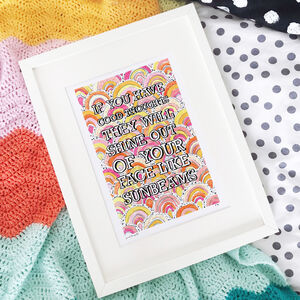 IF YOU HAVE
GOOD THOUGHTS
THEY WILL
SHINE OUT
OF YOUR
FACE LIKE
SUNBEAMS